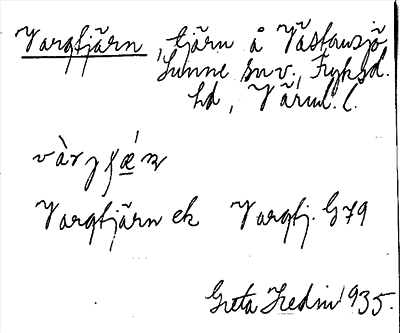 Vargtjärn, tjärn å Västansjö,
Sunne sn v., Fryksd.
hd, Värml. l.
Vargtjärn ek Vargtj. G79
Greta Hedin 1935.